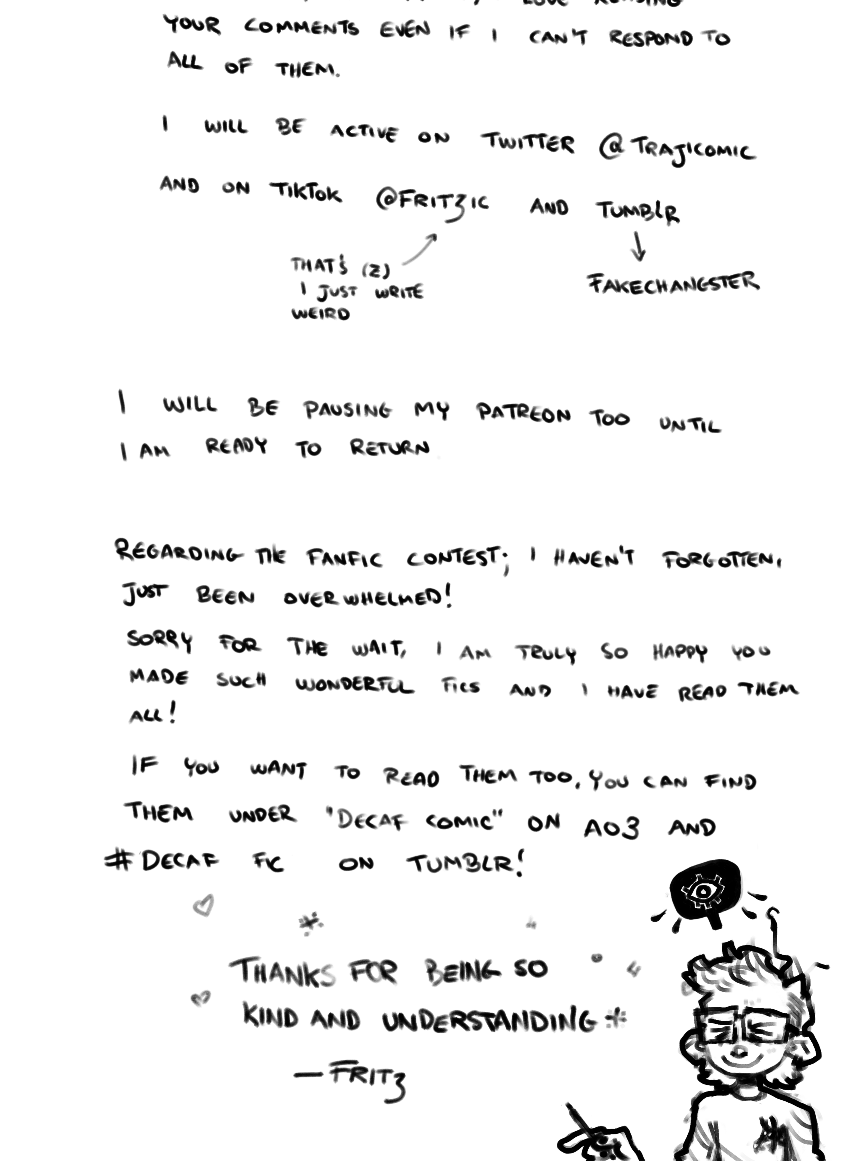 LOVE READING
YOUR COMMENTS EVEN IF I CAN'T RESPOND TO
ALL OF THEM.
I WILL BE ACTIVE ON TWITTER @TRAJICOMIC
AND ON TIKTOK @FRITZIC AND TUMBLR
THAT'S (Z)
I JUST WRITE
WEIRD
FAKECHANGSTER
I WILL BE PAUSING MY PATREON TOO UNTIL
I AM READY TO RETURN
REGARDING THE FANFIC CONTEST; I HAVEN'T FORGOTTEN,
JUST BEEN OVERWHELMED!
SORRY FOR THE WAIT, I AM TRULY SO HAPPY YOU
MADE SUCH WONDERFUL FICS AND I HAVE READ THEM
ALL!
IF YOU WANT TO READ THEM TOO, YOU CAN FIND
THEM UNDER "DECAF COMIC" ON AO3 AND
#DECAF FIC ON TUMBLR!
THANKS FOR BEING SO
KIND AND UNDERSTANDING
—FRITZ